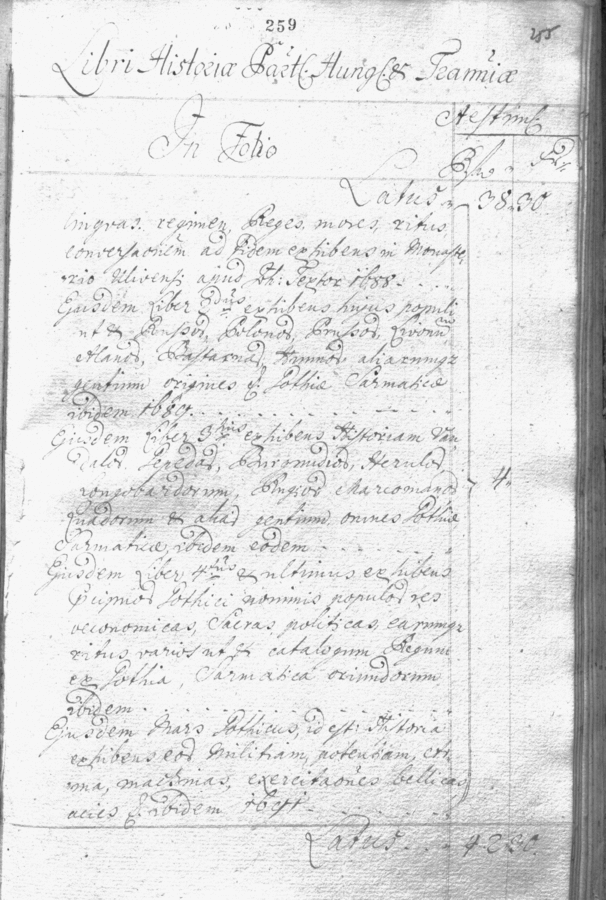 259
255
Libri Historiæ Part. Hung. & Tranniæ
Aestim.
In Folio
Latus 38 30
lingvas. regimen, Reges, mores, ritus,
conversationem ad fidem exhibens in Monaste
rio Olivensi apud Joh: Textor 1688.
Ejusdem Liber 2dus exhibens hujus populi
ut & Russos, Polonos, Prussos, Livonos
Alanos, Bastarnas, Hunnos aliarumq
gentium origines
Gothiæ Sarmaticæ
ibidem 1689.
Ejusdem Liber 3tius exhibens Historiam Van
dalos, Gepedas, Herulos
Longobardorum, Marcomanos
Quadorum & alias gentium, omnes Gothiæ
4
Sarmaticæ, ibidem eodem
Ejusdem Liber 4tus & ultimus exhibens
Gothici nominis populos res
oeconomicas, Sacras politicas, earumq
ritus, varios ut & catalogum Regum
ex Gothia, Sarmatica oriundorum
ibidem
Ejusdem Mars Gothicus, id est: Historia
exhibens eos Militiam, potentiam, ar
ma, machinas, exercitationes bellicas
acies &. ibidem
Latus 42 30